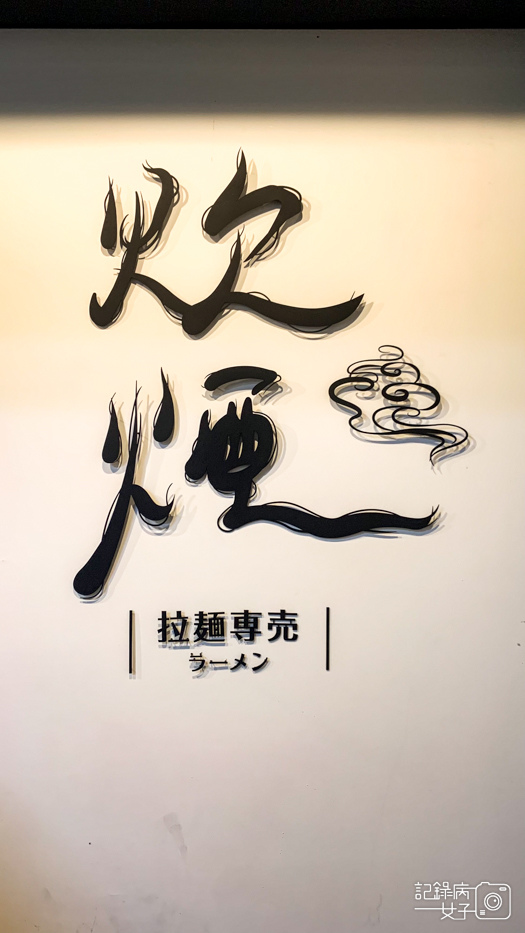 炊
煙
拉麺専売
ラーメン
記錄病
女子